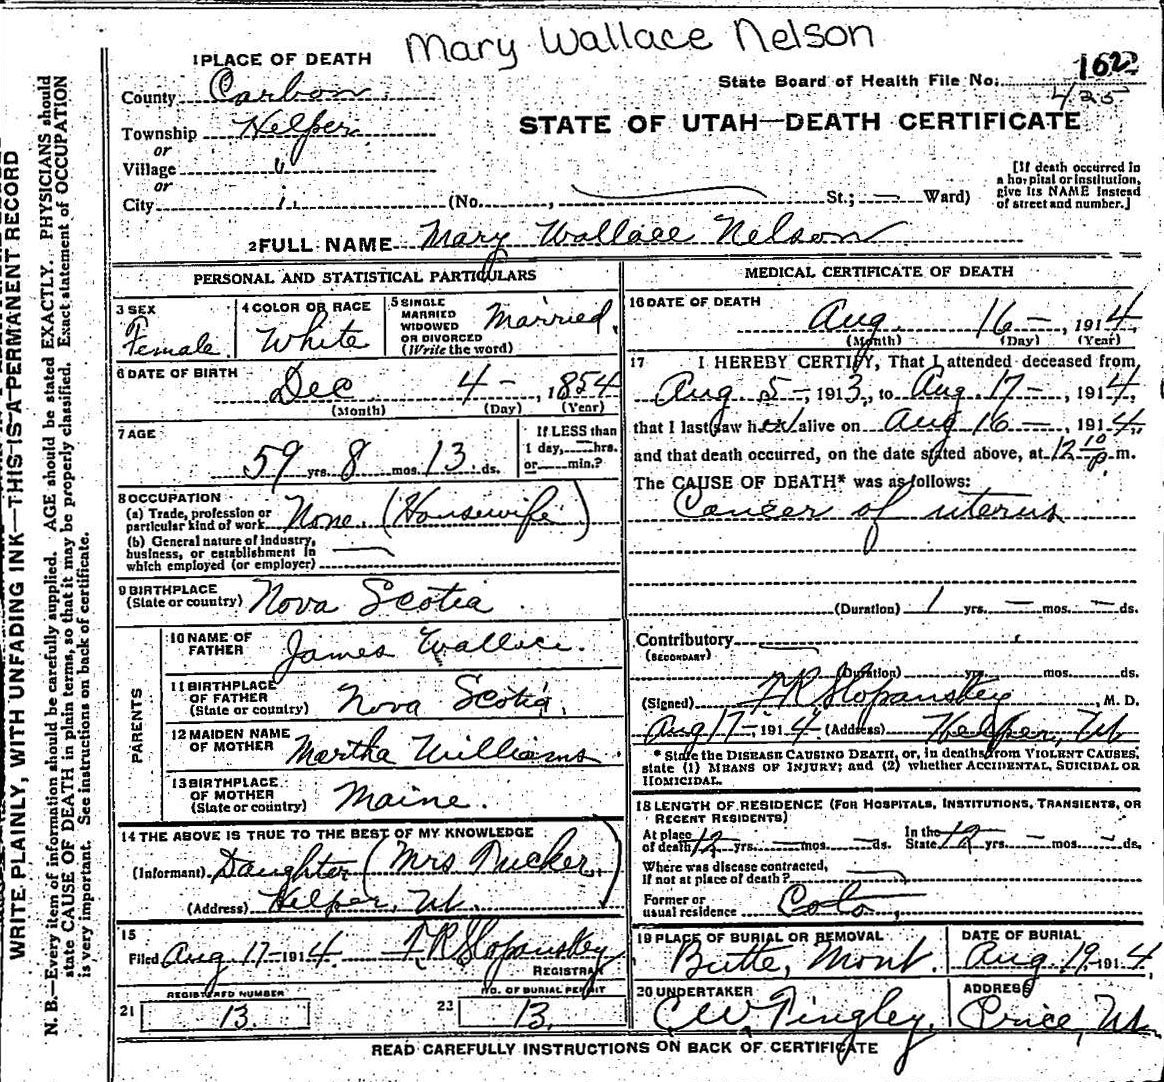 Mary Wallace Nelson
1 PLACE OF DEATH
State Board of Health File No. 162
425
County Carbon
Township Helper
or
Village "
or
City "
(No. , St.; — Ward)
STATE OF UTAH—DEATH CERTIFICATE
[If death occurred in
a hospital or institution,
give its NAME instead
of street and number.]
2 FULL NAME Mary Wallace Nelson
PERSONAL AND STATISTICAL PARTICULARS
3 SEX
Female
4 COLOR OR RACE
White
5 SINGLE
MARRIED
WIDOWED
OR DIVORCED
(Write the word)
Married.
6 DATE OF BIRTH
Dec 4 —, 1854
(Month) (Day) (Year)
7 AGE
59 yrs. 8 mos. 13 ds.
If LESS than
1 day, — hrs.
or — min.?
8 OCCUPATION
(a) Trade, profession or
particular kind of work None. (Housewife)
(b) General nature of industry,
business, or establishment in
which employed (or employer)
9 BIRTHPLACE
(State or country) Nova Scotia
PARENTS
10 NAME OF
FATHER James Wallace.
11 BIRTHPLACE
OF FATHER
(State or country) Nova Scotia,
12 MAIDEN NAME
OF MOTHER Martha Williams
13 BIRTHPLACE
OF MOTHER
(State or country) Maine.
14 THE ABOVE IS TRUE TO THE BEST OF MY KNOWLEDGE
(Informant) Daughter (Mrs Tucker)
(Address) Helper, Ut.
15
Filed Aug 17 — 1914. F R Slopanskey
REGISTRAR
REGISTERED NUMBER
21 13.
NO. OF BURIAL PERMIT
22 13.
MEDICAL CERTIFICATE OF DEATH
16 DATE OF DEATH
Aug. 16 —, 1914,
(Month) (Day) (Year)
17 I HEREBY CERTIFY, That I attended deceased from
Aug 5 —, 1913, to Aug. 17 —, 1914,
that I last saw her alive on Aug 16 —, 1914,
and that death occurred, on the date stated above, at 12 10 p m.
The CAUSE OF DEATH* was as follows:
Cancer of uterus
(Duration) 1 yrs. — mos. — ds.
Contributory
(SECONDARY)
(Duration) yrs. mos. ds.
(Signed) F R Slopanskey, M. D.
Aug 17 —, 1914 (Address) Helper, Ut
* State the DISEASE CAUSING DEATH, or, in deaths from VIOLENT CAUSES,
state (1) MEANS OF INJURY; and (2) whether ACCIDENTAL, SUICIDAL OR
HOMICIDAL.
18 LENGTH OF RESIDENCE (FOR HOSPITALS, INSTITUTIONS, TRANSIENTS, OR
RECENT RESIDENTS)
At place
of death 12 yrs. — mos. — ds.
In the
State 12 yrs. — mos. — ds.
Where was disease contracted,
if not at place of death?
Former or
usual residence Colo,
19 PLACE OF BURIAL OR REMOVAL
Butte, Mont.
DATE OF BURIAL
Aug. 19, 1914
20 UNDERTAKER
C W Tingley.
ADDRESS
Price, Ut.
READ CAREFULLY INSTRUCTIONS ON BACK OF CERTIFICATE
WRITE PLAINLY, WITH UNFADING INK—THIS IS A PERMANENT RECORD
N. B.—Every item of information should be carefully supplied. AGE should be stated EXACTLY. PHYSICIANS should
state CAUSE OF DEATH in plain terms, so that it may be properly classified. Exact statement of OCCUPATION
is very important. See instructions on back of certificate.